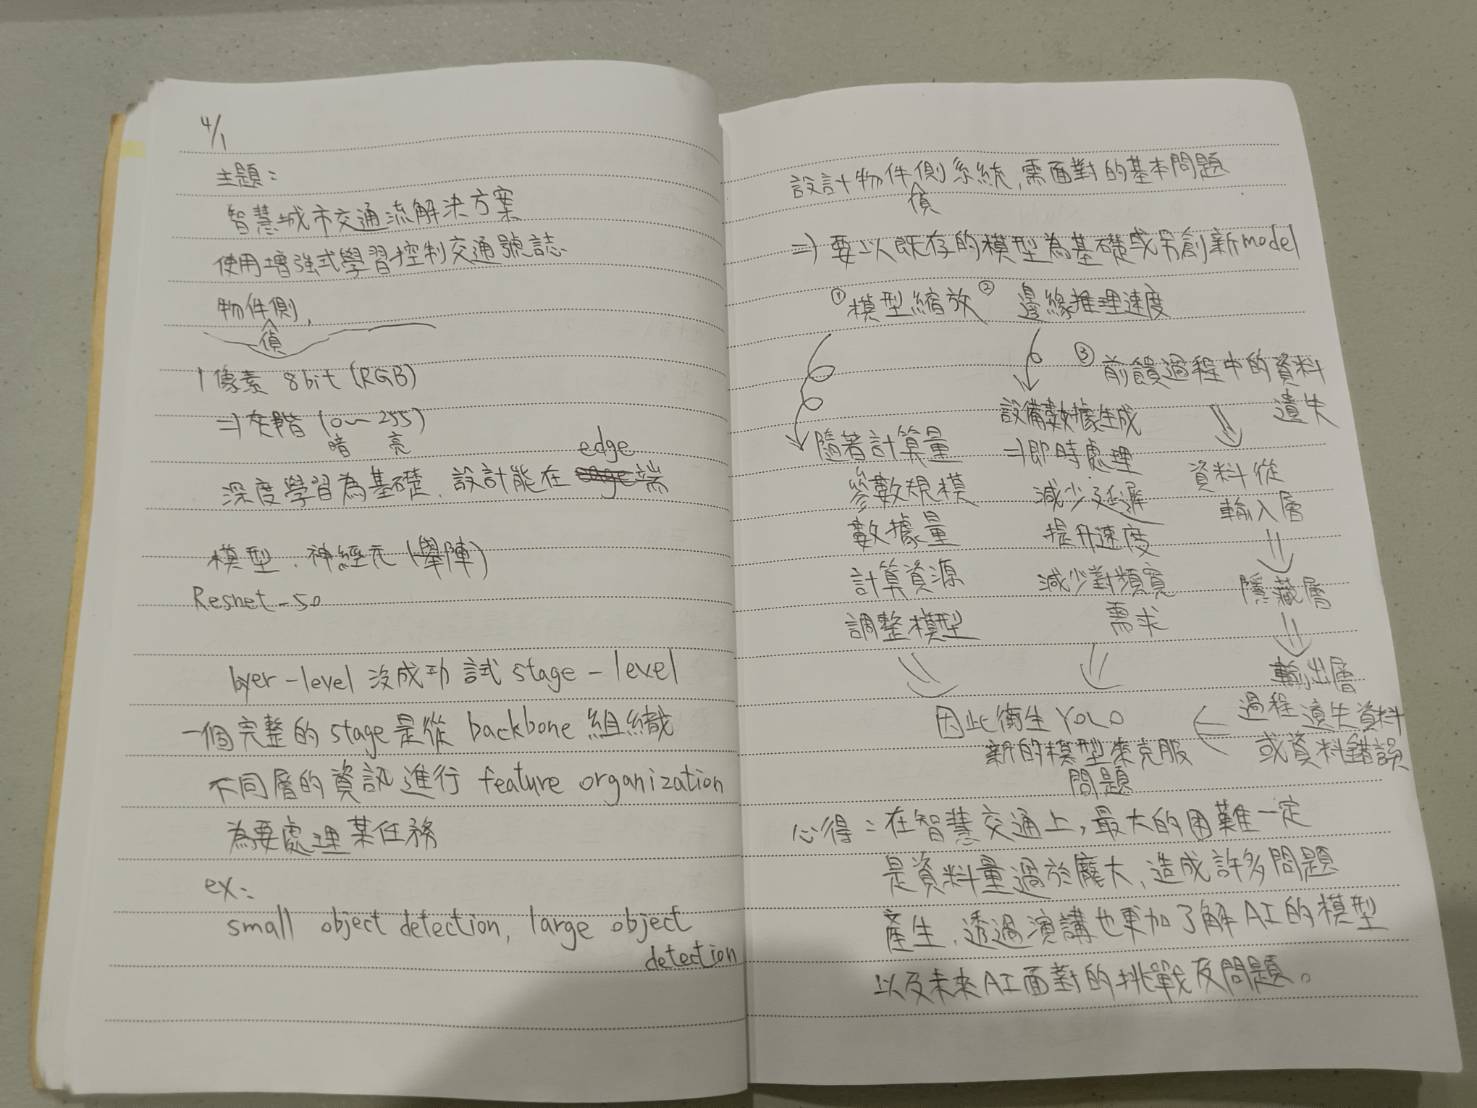 4/1
主題：
智慧城市交通流解決方案
使用增強式學習控制交通號誌.
物件偵側,
1像素 8bit (RGB)
⇒灰階 (0~255)
暗 亮
深度學習為基礎, 設計能在 edge 端
模型、神經元 (舉陣)
Resnet-50
layer-level 沒成功 試 stage-level
一個完整的 stage是從 backbone 組織
不同層的資訊 進行 feature organization
為要處理某任務
ex:
small object detection, large object
detection
設計物件偵側系統,需面對的基本問題
⇒ 要以既存的模型為基礎或另創新model
①模型縮放 ② 邊緣推理速度
③ 前饋過程中的資料
遺失
隨著計算量
參數規模
數據量
計算資源
調整模型
設備數據生成
⇒即時處理
減少延遲
提升速度
減少對頻寬
需求
資料從
輸入層
⇓
隱藏層
⇓
輸出層
過程 遺失資料
或資料錯誤
因此衍生 YOLO
新的模型來克服
問題
心得：在智慧交通上,最大的困難一定
是資料量過於龐大,造成許多問題
產生,透過演講也更加了解AI的模型
以及未來AI面對的挑戰及問題。